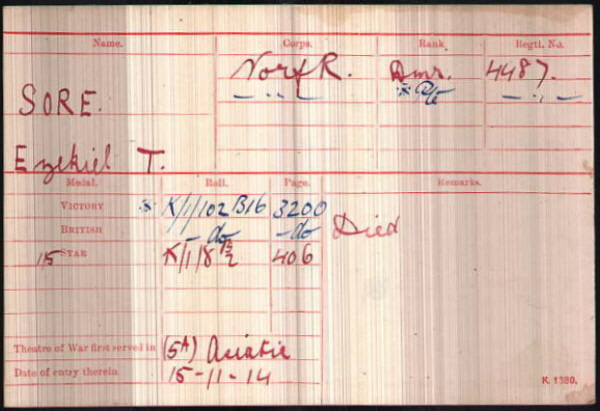 Name. Corps. Rank. Regtl. No.
Norf R. Dmr. 4487.
— " — * Pte — " —
SORE.
Ezekiel T.
Medal. Roll. Page. Remarks.
VICTORY * K/1/102 B16 3200
BRITISH — do — do Died
15 STAR K/1/8 406
Theatre of War first served in (5A) Asiatic
Date of entry therein 15-11-14
K. 1380.